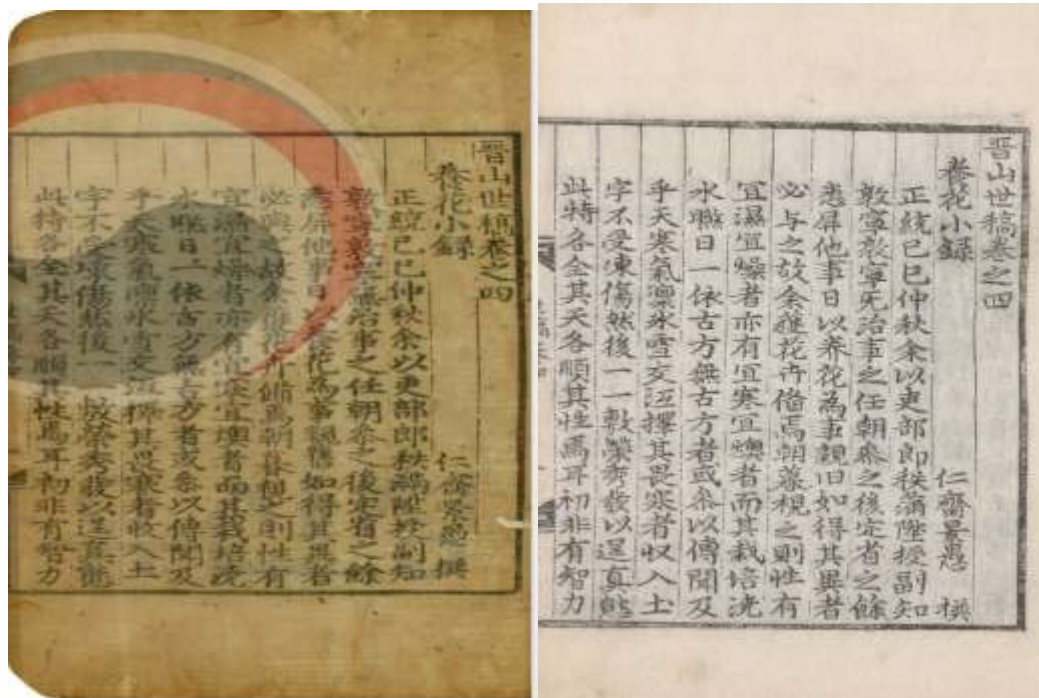 晉山世稿卷之四
養花小録
仁齋景愚 撰
正統己巳仲秋余以吏部郎秩滿陞授副知
敦寧敦寧無治事之任朝叅之後定省之餘
悉屏他事日以養花為事親舊如得其異者
必與之故余雖花卉備焉朝暮視之則性有
宜濕宜燥者亦有宜寒宜燠者而其栽培澆
水曬日一依古方無古方者或叅以傳聞及
乎天寒氣凛氷雪交沍擇其畏寒者收入土
宇不受凍傷然後一一敷榮秀發以逞真態
此特各全其天各順其性焉耳初非有智力
晉山世稿卷之四
養花小録
仁齋景愚 撰
正統己巳仲秋余以吏部郎秩滿陞授副知
敦寧敦寧无治事之任朝叅之後定省之餘
悉屏他事日以养花為事親旧如得其異者
必与之故余雖花卉俻焉朝暮視之則性有
宜濕宜燥者亦有宜寒宜燠者而其栽培澆
水曬日一依古方無古方者或叅以傳聞及
乎天寒氣凛氷雪交沍擇其畏寒者収入土
宇不受凍傷然後一一敷榮秀發以逞真態
此特各全其天各順其性焉耳初非有智力